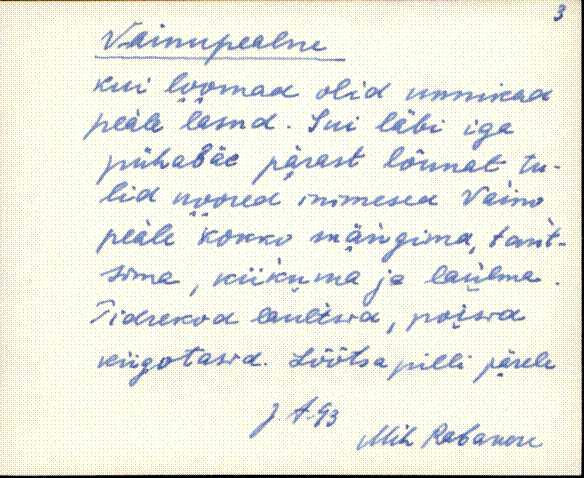 3
Vainupealne
kui loomad olid unnikad
peale lasnd. Sui läbi iga
pühabäe pärast lõunat tu-
lid noored inimesed Vaino
peale kokko mängima, tant-
sima, kiikuma ja laulma.
Tidrekod laultsid, poisid
kiigotasid. Lõõtsa pilli järele